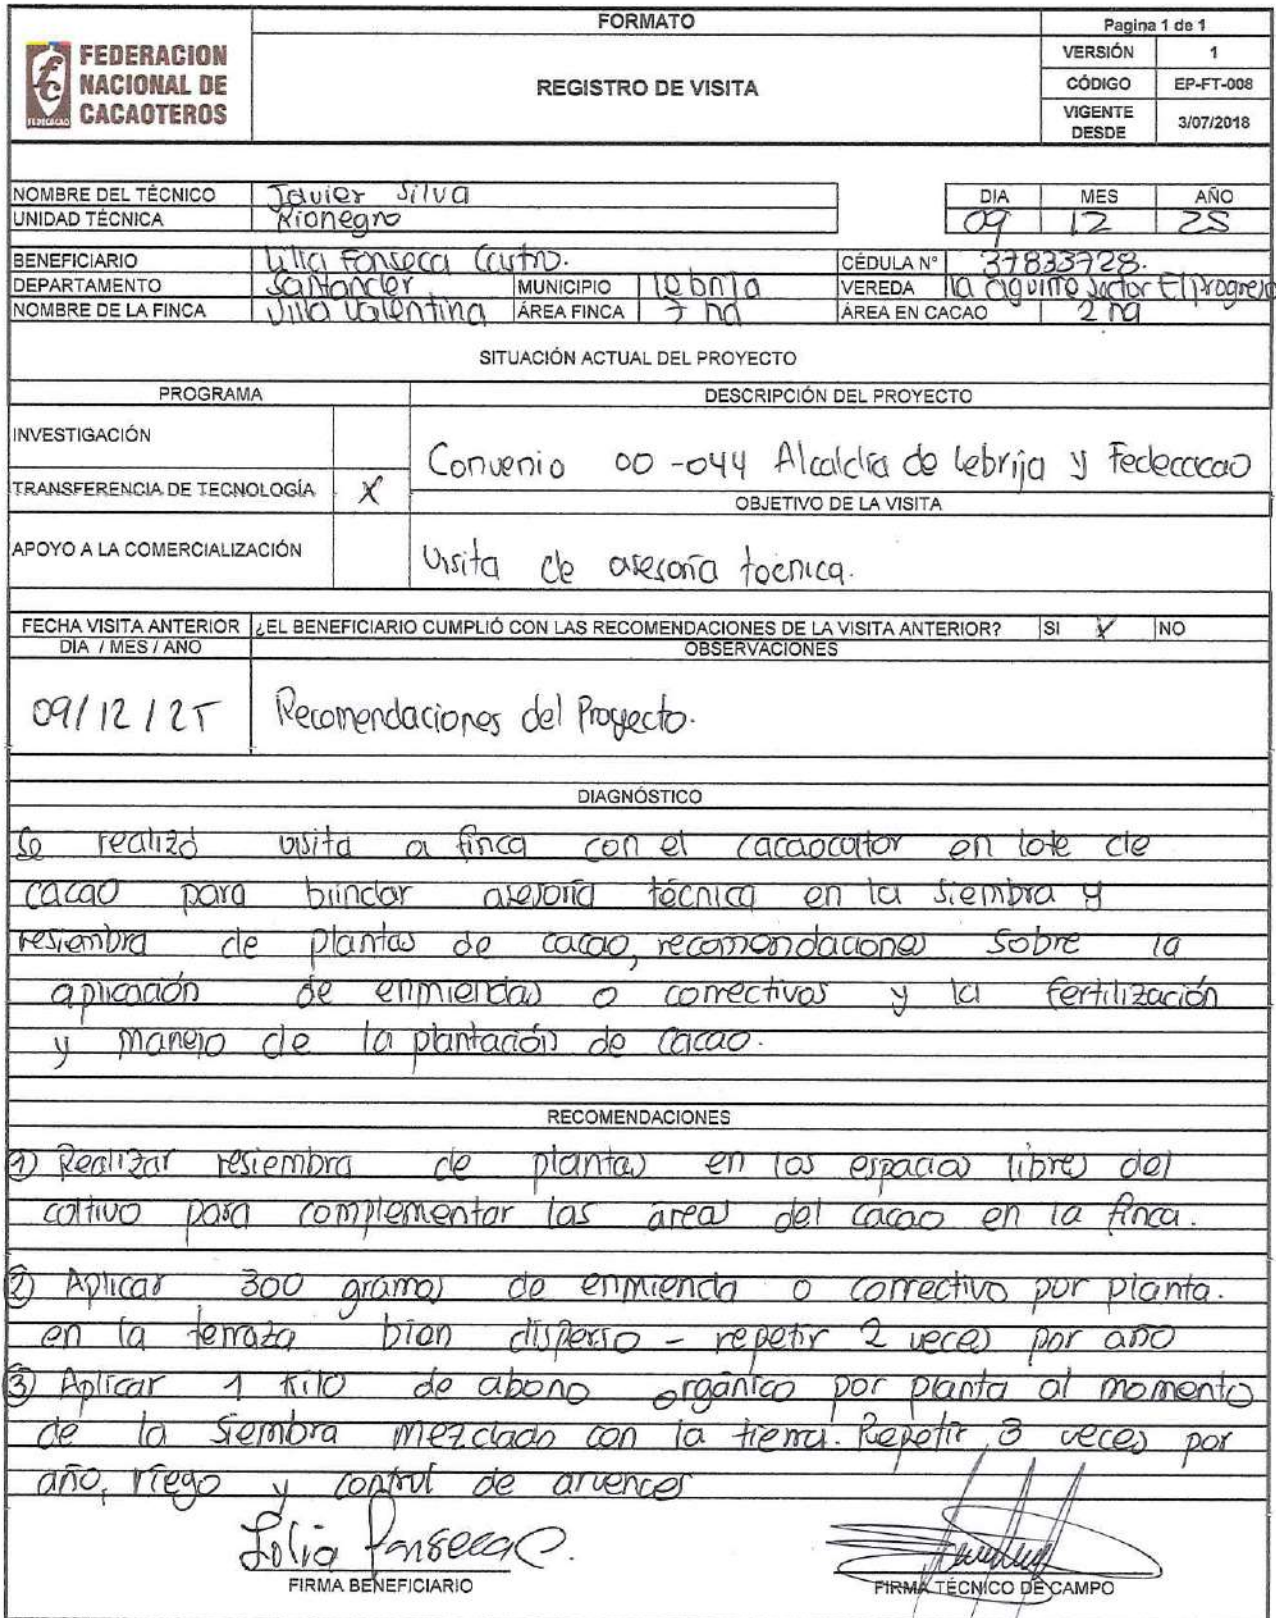 FEDERACION
NACIONAL DE
CACAOTEROS
FEDECACAO
FORMATO
REGISTRO DE VISITA
Pagina 1 de 1
VERSIÓN 1
CÓDIGO EP-FT-008
VIGENTE DESDE 3/07/2018
NOMBRE DEL TÉCNICO Javier Silva
UNIDAD TÉCNICA Rionegro
DIA MES AÑO
09 12 25
BENEFICIARIO Lilia Fonseca Castro. CÉDULA N° 37833728.
DEPARTAMENTO Santander MUNICIPIO lebrija VEREDA la aguirre sector El progreso
NOMBRE DE LA FINCA Villa Valentina ÁREA FINCA 7 ha ÁREA EN CACAO 2 ha
SITUACIÓN ACTUAL DEL PROYECTO
PROGRAMA DESCRIPCIÓN DEL PROYECTO
INVESTIGACIÓN
Convenio 00-044 Alcaldía de lebrija y Fedecacao
TRANSFERENCIA DE TECNOLOGÍA X
OBJETIVO DE LA VISITA
APOYO A LA COMERCIALIZACIÓN
Visita de asesoria tecnica.
FECHA VISITA ANTERIOR ¿EL BENEFICIARIO CUMPLIÓ CON LAS RECOMENDACIONES DE LA VISITA ANTERIOR? SI X NO
DIA / MES / AÑO OBSERVACIONES
09/12/25 Recomendaciones del Proyecto.
DIAGNÓSTICO
Se realizó visita a finca con el cacaocultor en lote de
cacao para brindar asesoria técnica en la siembra y
resiembra de plantas de cacao, recomendaciones sobre la
aplicación de enmiendas o correctivos y la fertilización
y manejo de la plantación de cacao.
RECOMENDACIONES
1) Realizar resiembra de plantas en los espacios libres del
cultivo para complementar las areas del cacao en la finca.
2) Aplicar 300 gramos de enmienda o correctivo por planta.
en la terraza bien disperso - repetir 2 veces por año
3) Aplicar 1 kilo de abono orgánico por planta al momento
de la siembra mezclado con la tierra. Repetir 3 veces por
año, riego y control de arvences
Lilia Fonseca C.
FIRMA BENEFICIARIO
FIRMA TÉCNICO DE CAMPO